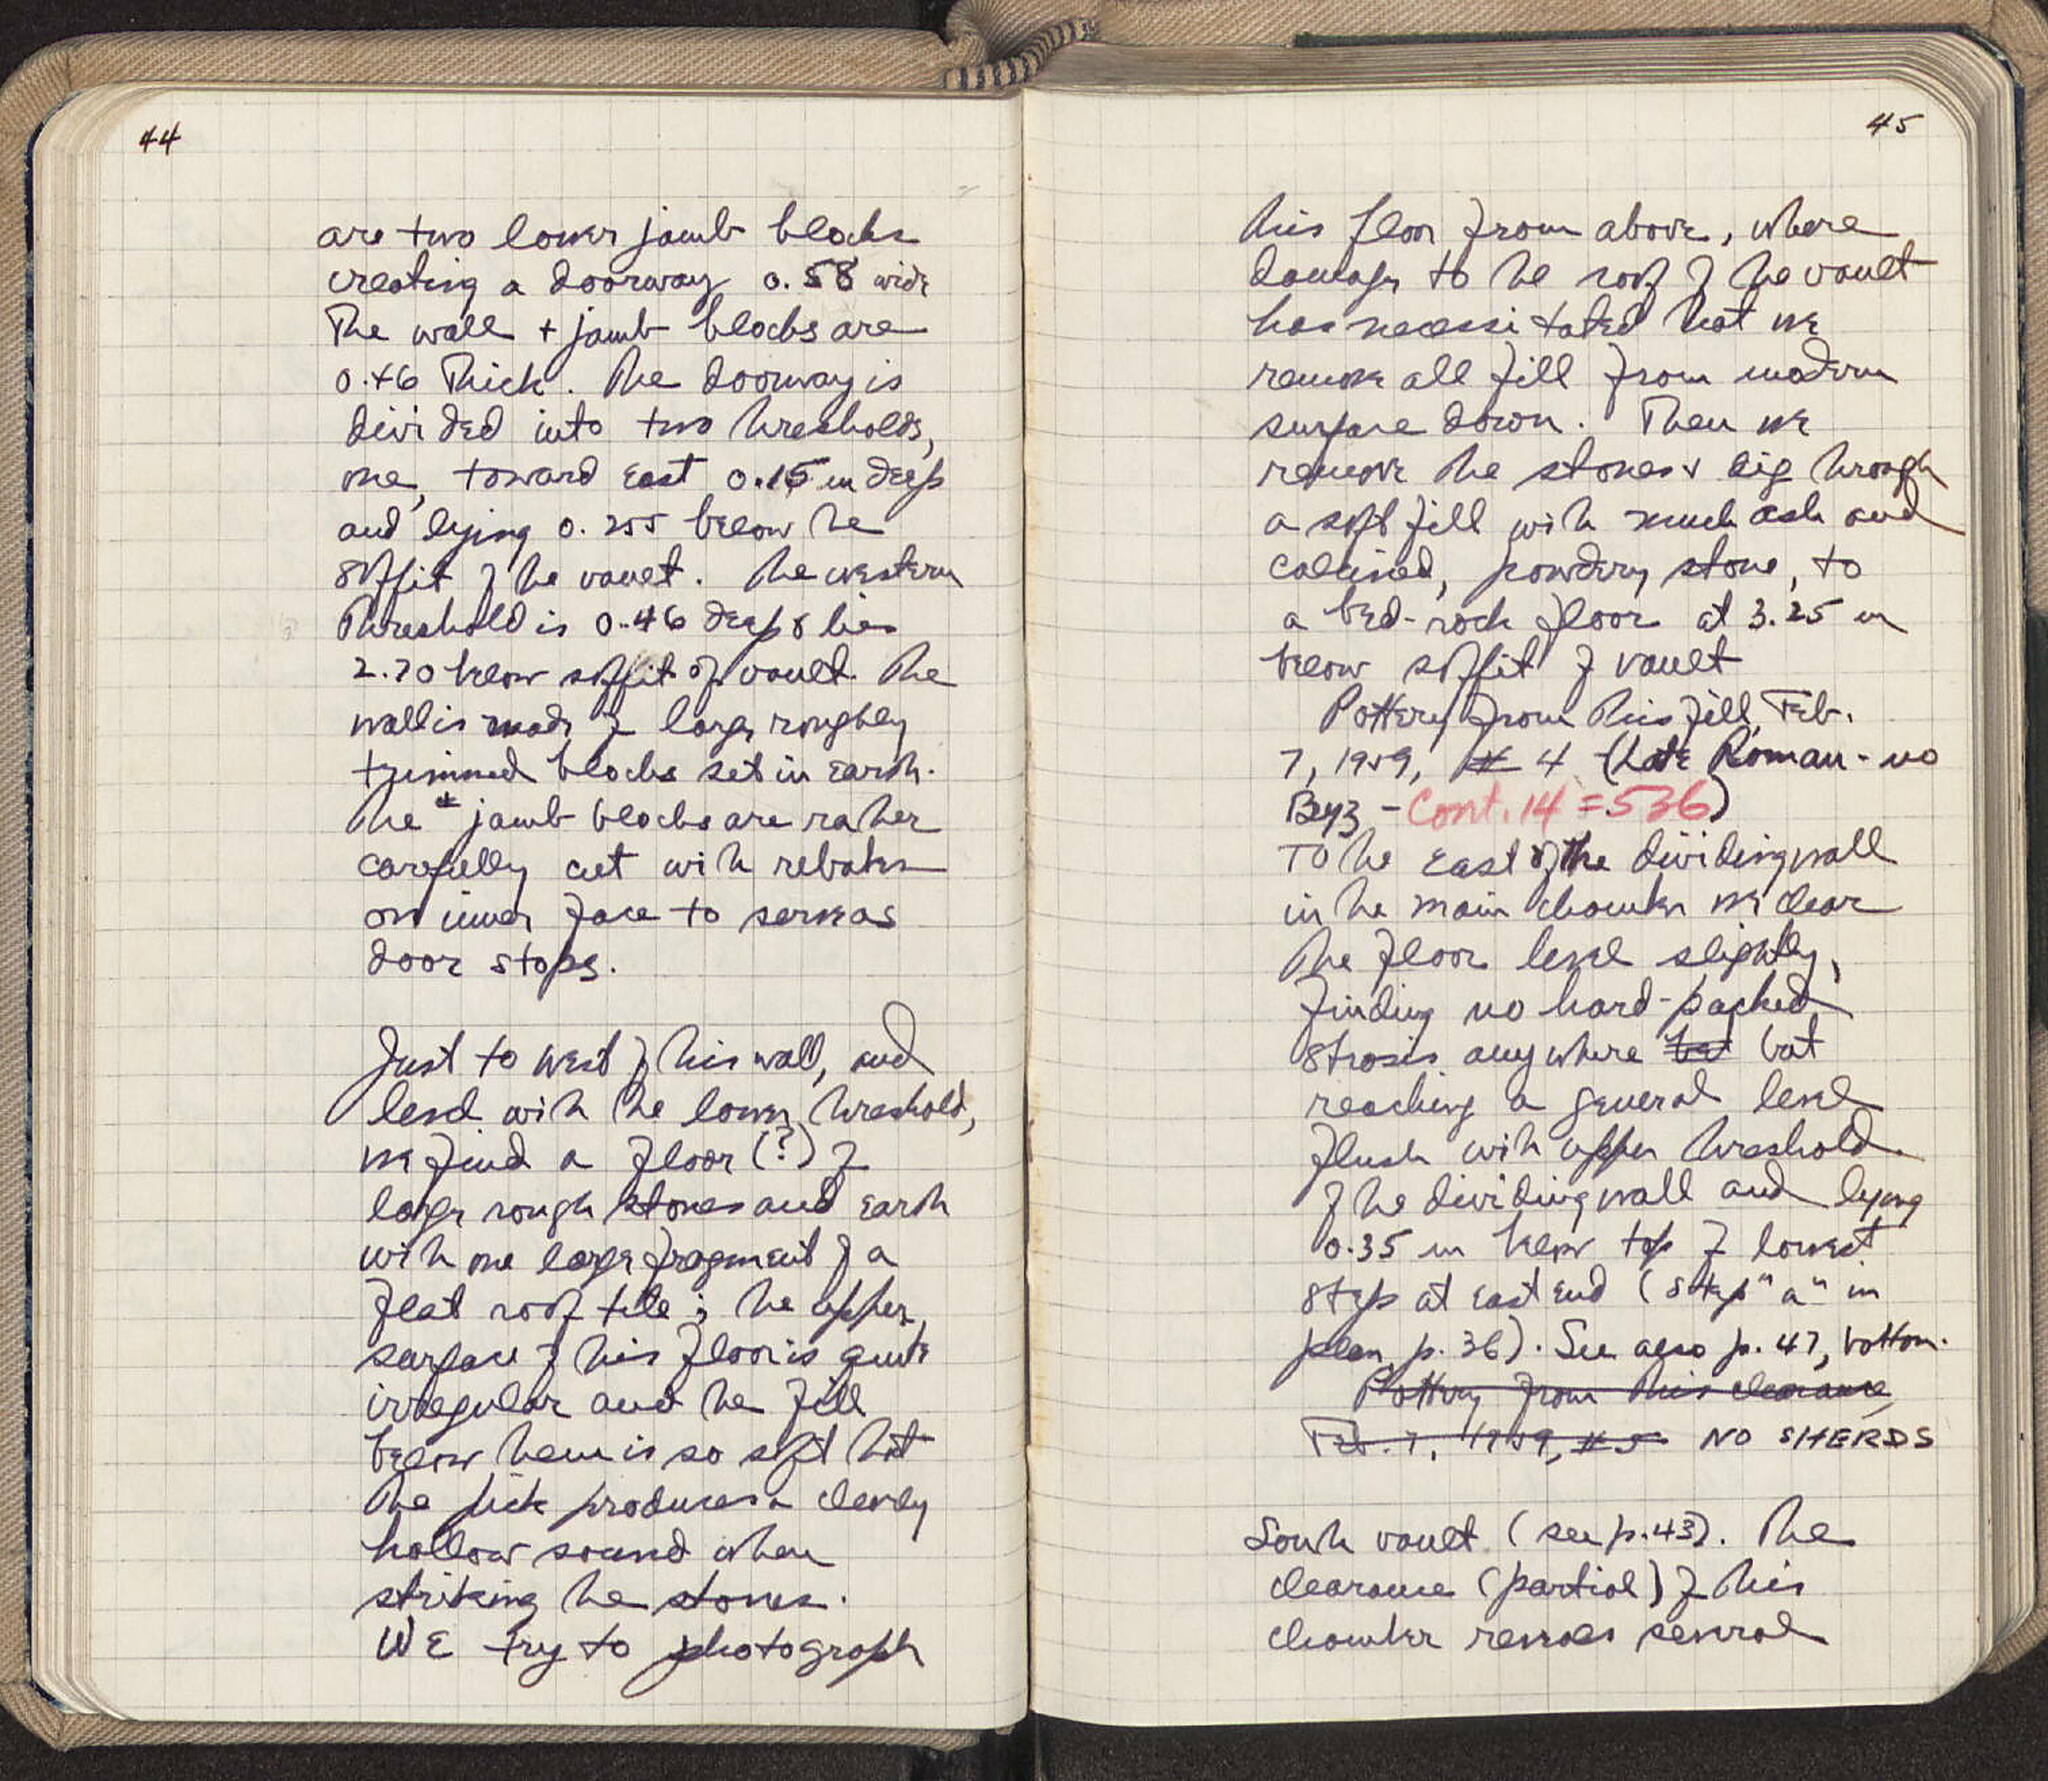 44
are two lower jamb blocks
creating a doorway 0.58 wide
The wall + jamb blocks are
0.46 thick. The doorway is
divided into two thresholds,
one, toward East 0.15 m deep
and lying 0.255 below the
soffit of the vault. The western
threshold is 0.46 deep & lies
2.70 below soffit of vault. The
wall is made of large roughly
trimmed blocks set in earth.
The jamb blocks are rather
carefully cut with rebates
on inner face to serve as
door stops.
Just to West of this wall, and
level with the lower threshold,
we find a floor (?) of
large rough stones and earth
with one large fragment of a
flat roof tile; the upper
surface of this floor is quite
irregular and the fill
below them is so soft that
the pick produces a clearly
hollow sound when
striking the stones.
WE try to photograph
45
this floor from above, where
damage to the roof of the vault
has necessitated that we
remove all fill from modern
surface down. Then we
remove the stones & dig through
a soft fill with much ash and
calcined, powdery stone, to
a bed-rock floor at 3.25 m
below soffit of vault
Pottery from this fill, Feb.
7, 1959, # 4 (Late Roman - no
Byz - Cont. 14 = 536)
To the East of the dividing wall
in the main chamber we clear
the floor level slightly,
finding no hard-packed
strosis anywhere but but
reaching a general level
flush with upper threshold
of the dividing wall and lying
0.35 m below top of lowest
step at East End (step "a" in
plan, p. 36). See also p. 47, bottom.
Pottery from this clearance,
Feb. 7, 1959, # 5 NO SHERDS
South vault (see p. 43). The
clearance (partial) of this
chamber removes several